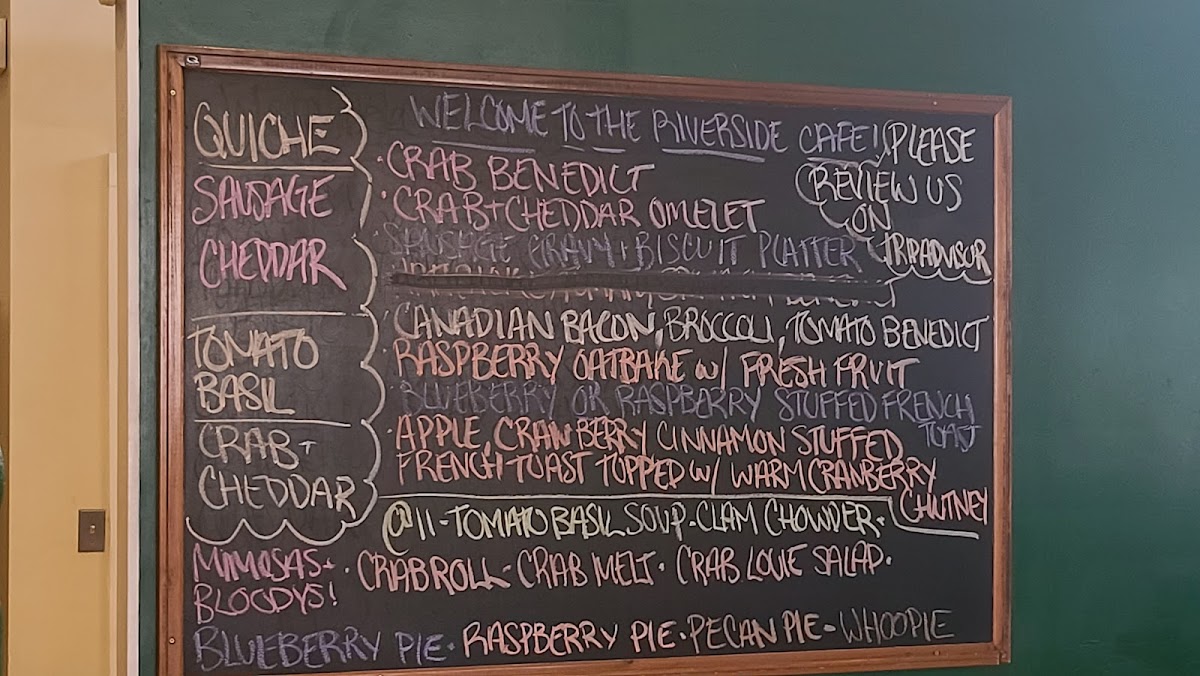 QUICHE
SAUSAGE
CHEDDAR
TOMATO
BASIL
CRAB +
CHEDDAR
WELCOME TO THE RIVERSIDE CAFE!
PLEASE
REVIEW US
ON
TRIPADVISOR
· CRAB BENEDICT
· CRAB + CHEDDAR OMELET
· SAUSAGE GRAVY + BISCUIT PLATTER
· CANADIAN BACON, BROCCOLI, TOMATO BENEDICT
· RASPBERRY OATBAKE W/ FRESH FRUIT
· BLUEBERRY OR RASPBERRY STUFFED FRENCH
TOAST
· APPLE, CRANBERRY CINNAMON STUFFED
FRENCH TOAST TOPPED W/ WARM CRANBERRY
CHUTNEY
@11-TOMATO BASIL SOUP-CLAM CHOWDER·
MIMOSAS +
BLOODYS!
· CRABROLL · CRAB MELT · CRAB LOUIE SALAD·
BLUEBERRY PIE · RASPBERRY PIE · PECAN PIE - WHOOPIE